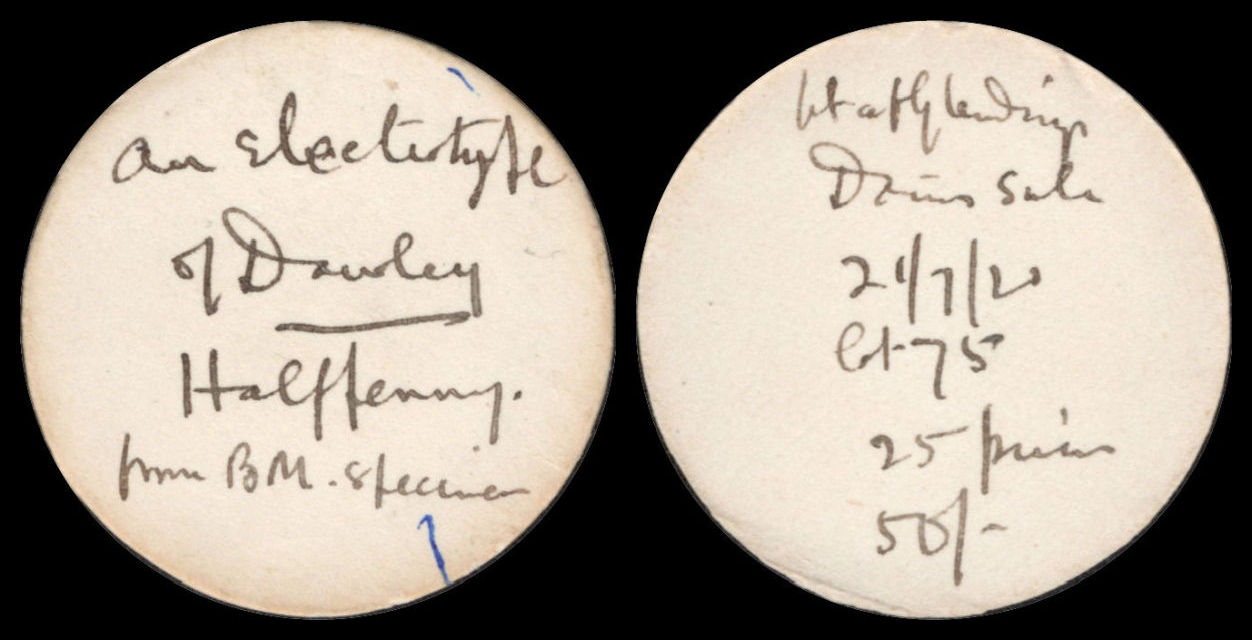 an Electrotype
of Dawley
Halfpenny.
from B M. specimen
bt at Glendinings
Davis Sale
21/7/20
lot 75
25 pieces
50/-